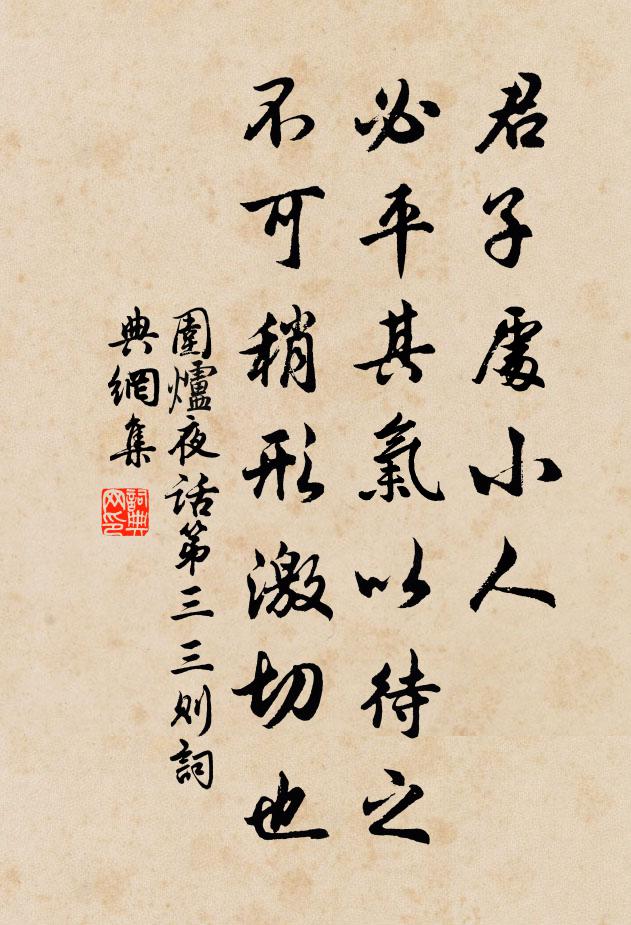 君子處小人
必平其氣以待之
不可稍形激切也
圍爐夜話第三三則詞
典網集
詞典
网印